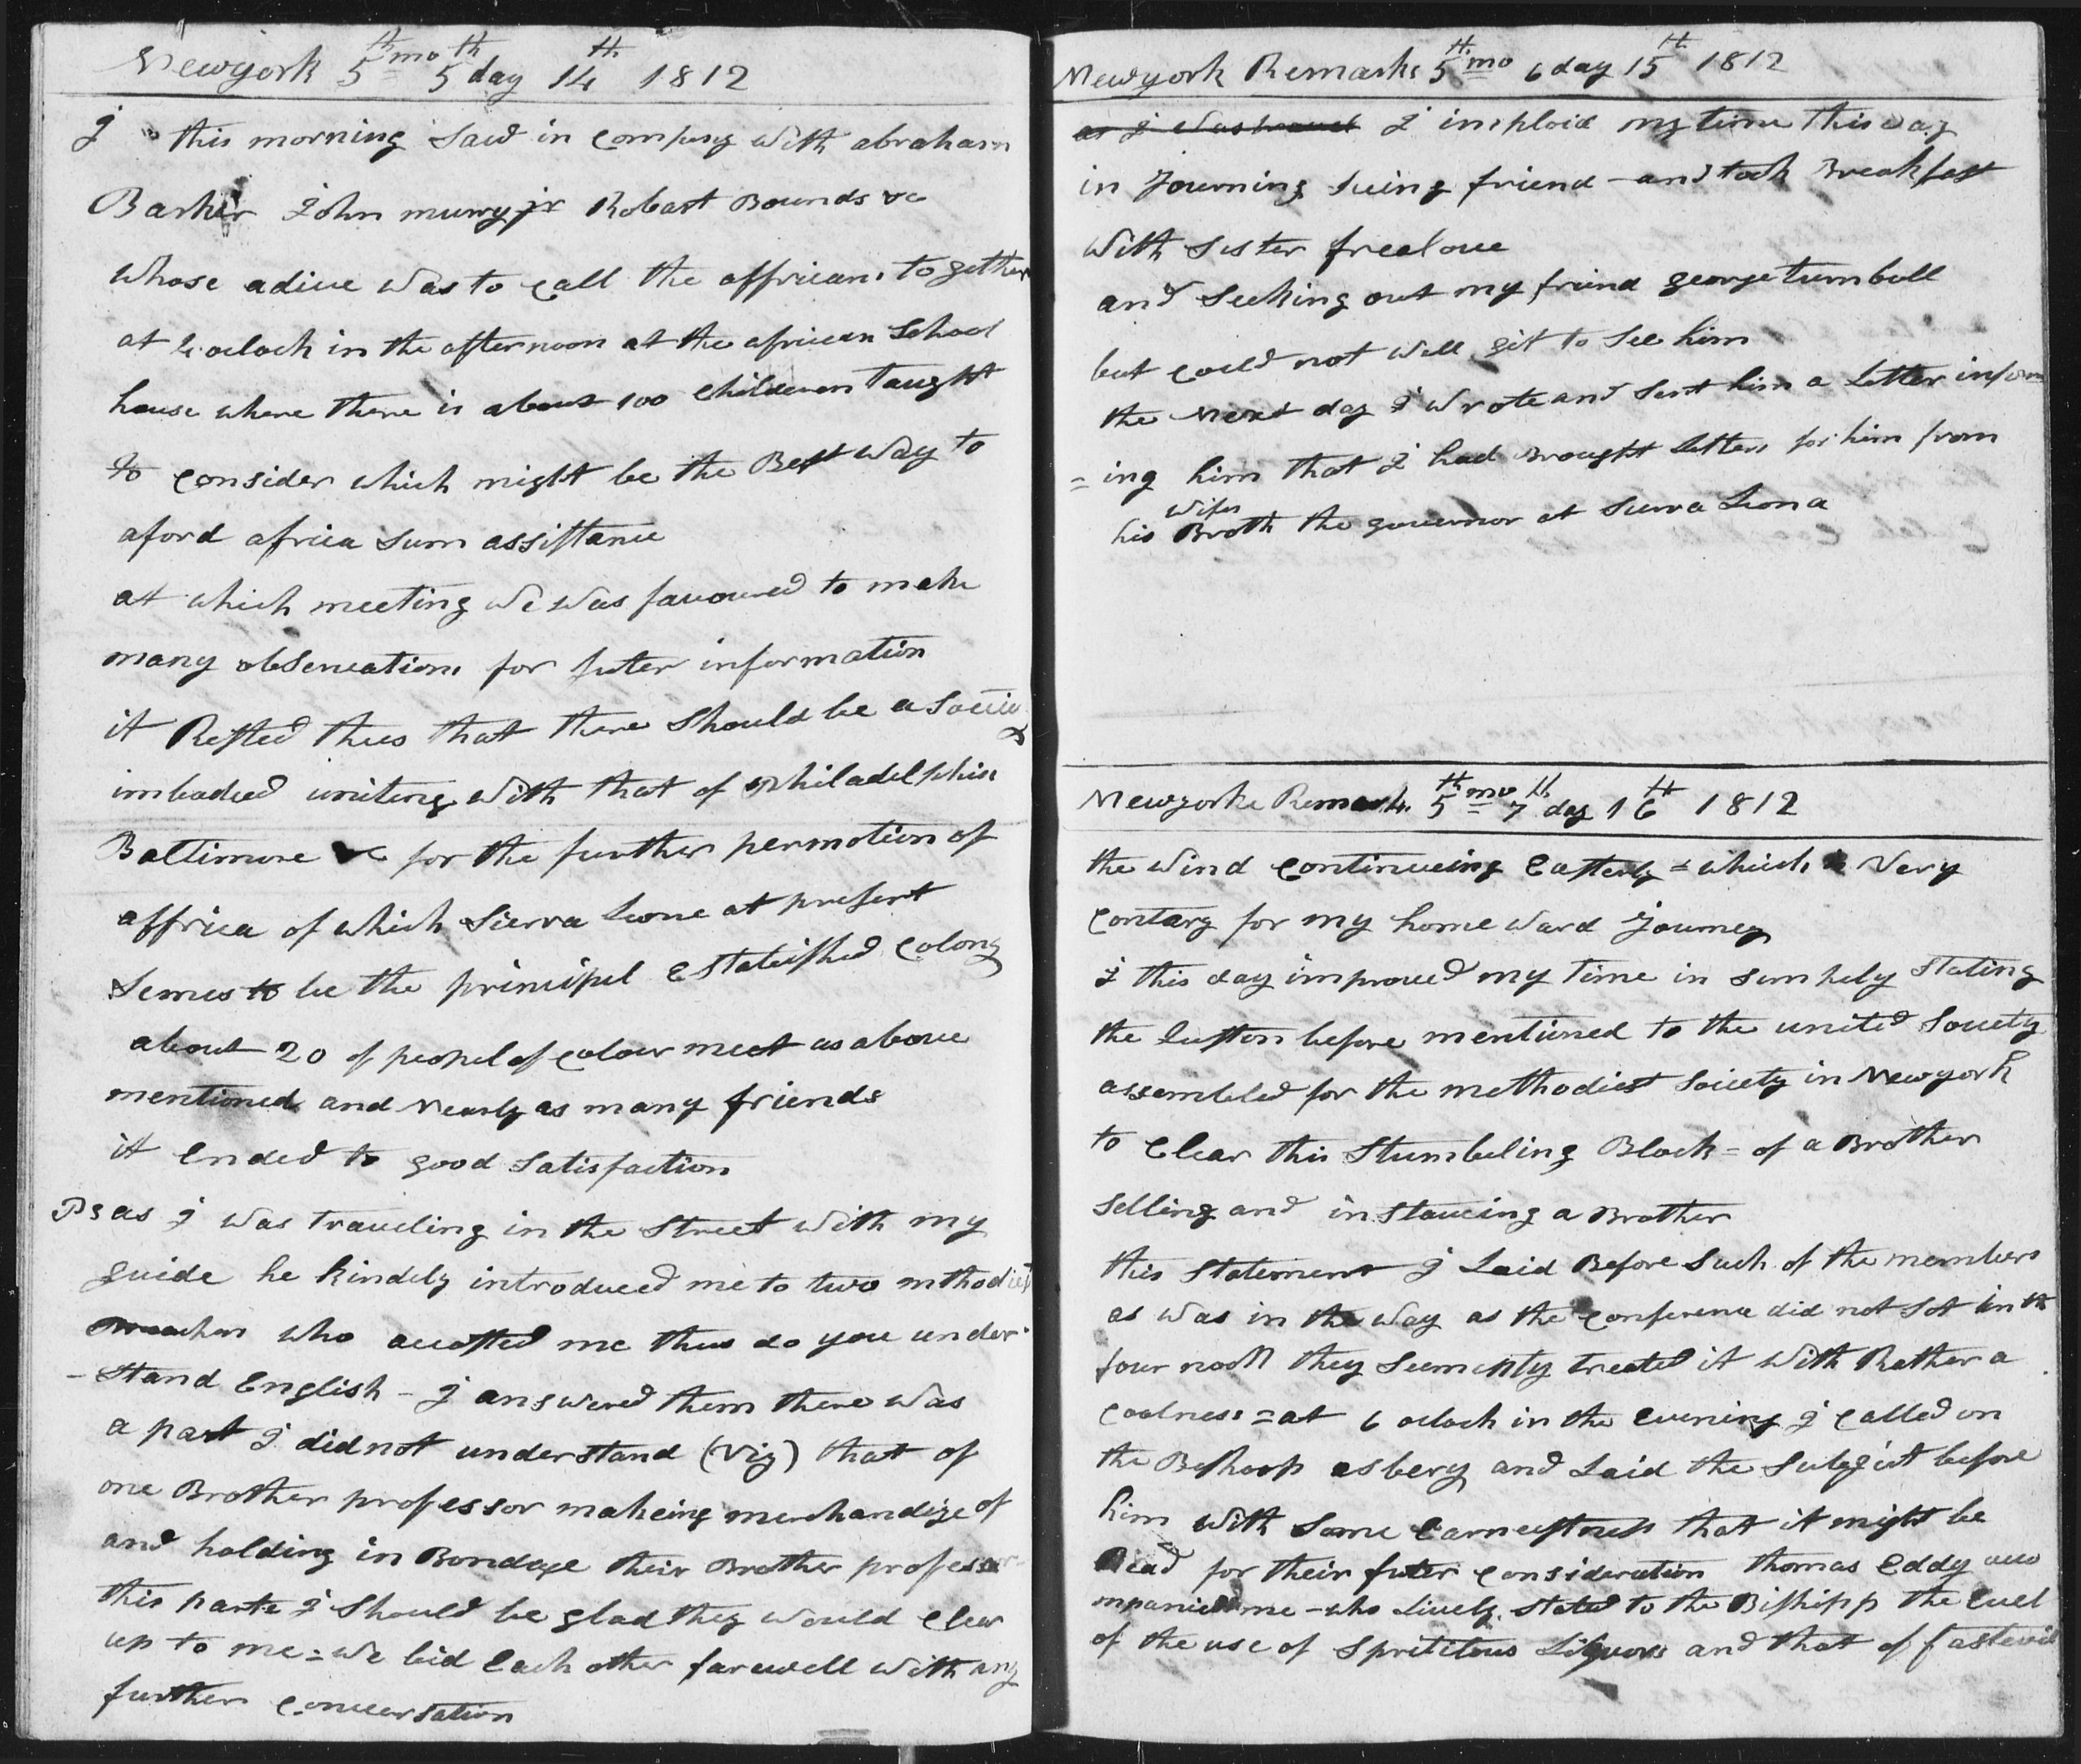 Newyork 5th mo 5th day 14th 1812
I this morning Said in Compeny with abraham
Barker John murry jr Robart Bounds &c
whose adive was to Call the affricans together
at 4 oclock in the afternoon at the african School
house where there is about 100 Childeren Taught
to Consider which might be the Best way to
aford africa Sum assistance
at which meeting we was favoured to make
many obserVations for futer information
it Rested thus that there Should be a Society
imbodied uniting with that of Philadelphia
Baltimore &c for the further permotion of
affrica of which Sierra Leone at present
Semes to be the principel Established Colony
about 20 of peopel of Colour meet as above
mentioned and Nearly as many friends
it Ended to good Satisfaction
PS as I was Traveling in the Street with my
guide he kindely introduced me to two mthodist
Preachers who accosted me thus do you under
-Stand English - I answered them there was
a part I did not understand (Viz) that of
one Brother professor makeing merchandize of
and holding in Bondage their Brother professor
this parte I Should be glad they would Clear
up to me = we bid Each other farewell with any
further Conversation
Newyork Remarks 5th mo 6 day 15th 1812
I imploid my time this day
in Journing Seing friend - and took Breakfast
with Sister freelove
and Seeking out my friend george turnbull
but Could not well git to See him
the Next day I wrote and Sent him a Letter inform
=ing him that I had Brought Letters for him from
his wifes Broth the governor at Sierra Leona
Newyorke Remark 5th mo 7th day 16th 1812
the wind Continueing Easterly = which is Very
Contary for my home ward Journey
I this day improved my time in Simpely Stating
the before mentioned to the united Society
assembeled for the methodiest Society in Newyork
to Clear this Stumbeling Block = of a Brother
Selling and inslaveing a Brother
this Statement I Laid Before Such of the members
as was in the way as the Conference did not Set in the
four noon they treated it with Rather a
Coolness = at 6 oclock in the Evening I Called on
the Beshoop asbery and Laid the Subgict before
him with Some Earnestness that it might be
Read for their futer Consideration thomas Eddy acco
mpanied me - who Lively Stated to the Bishipp the Evel
of the use of Spretitous Liquors and that of